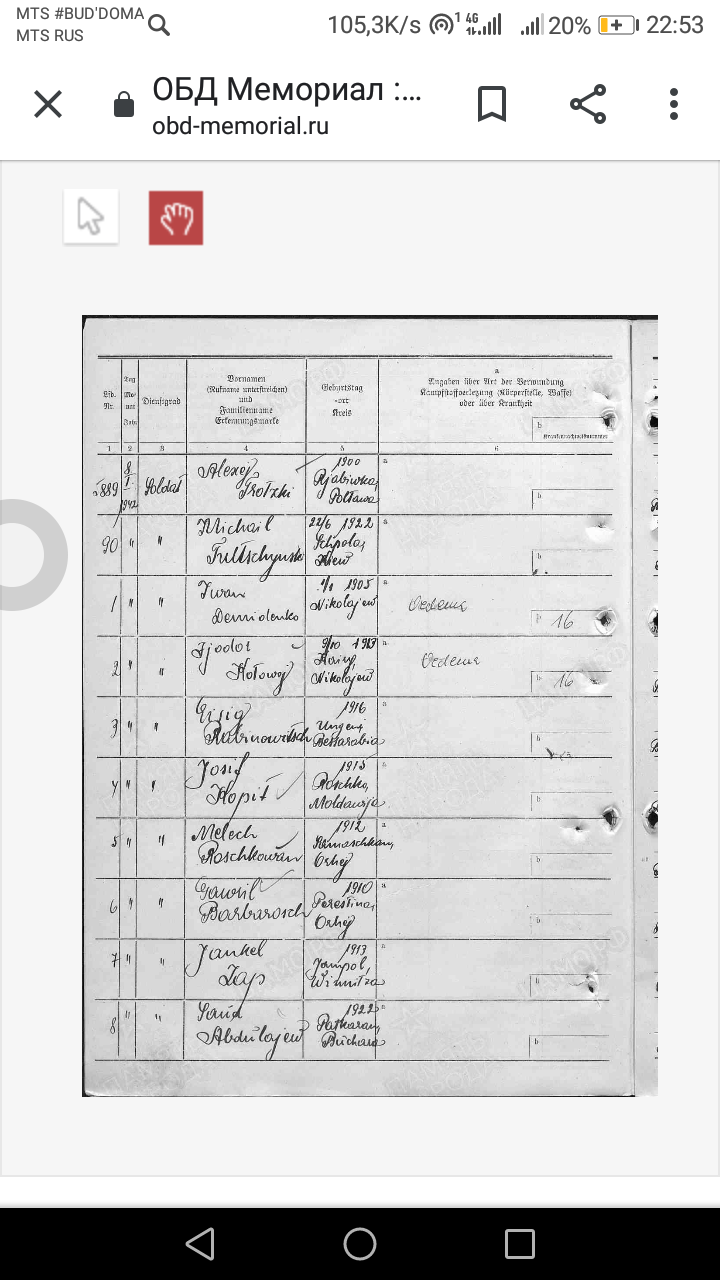 MTS #BUD'DOMA
MTS RUS
105,3K/s 1 4G 20% 22:53
ОБД Мемориал :...
obd-memorial.ru
Lfd. Nr.
Tag Monat Jahr
Dienstgrad
Vornamen
(Rufname unterstreichen)
und
Familienname
Erkennungsmarke
Geburtstag
-ort
Kreis
a
Angaben über Art der Verwundung
Kampfstoffverletzung (Körperstelle, Waffe)
oder über Krankheit
b
Krankenbuchnummer
1 2 3 4 5 6
889 8/I 1942 Soldat Alexej Trotzki 1900 Rjabiwka, Poltawa a b
90 " " Michail 22/6 1922 Kiew a b
1 " " Iwan Demidenko 1/1 1905 Nikolajew a Oedeme b 16
2 " " Fjodor Kotowoj 9/10 1913 Nikolajew a Oedeme b 16
3 " " Rabinowitsch 1916 Ungeni, Bessarabia a b
4 " " Josif Kopit 1915 Roschka, Moldawija a b
5 " " Melech Roschkowan 1912 Orhej a b
6 " " Gawril Barbarosch 1910 Perestina, Orhej a b
7 " " Jankel Zap 1913 Jampol, Winnitza a b
8 " " Said Abdulajew 1922 Buchara a b